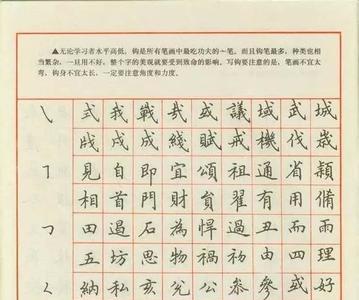 ▲无论学习者水平高低，钩是所有笔画中最吃功夫的一笔。而且钩笔最多，种类也相
当繁杂，一旦用不好，整个字的美观就要受到致命的影响。写钩要注意的是，笔画不宜太
弯，钩身不宜太长，一定要注意角度和力度。
式我戰哉或議域武城
成戍成綫賦戒機伐歲
見自即宜頌祖通省穎
相首門財貟翟有用備
田過石為悍過丑而雨
五坊思物禍初由四理
納私亥兊公叅參或好